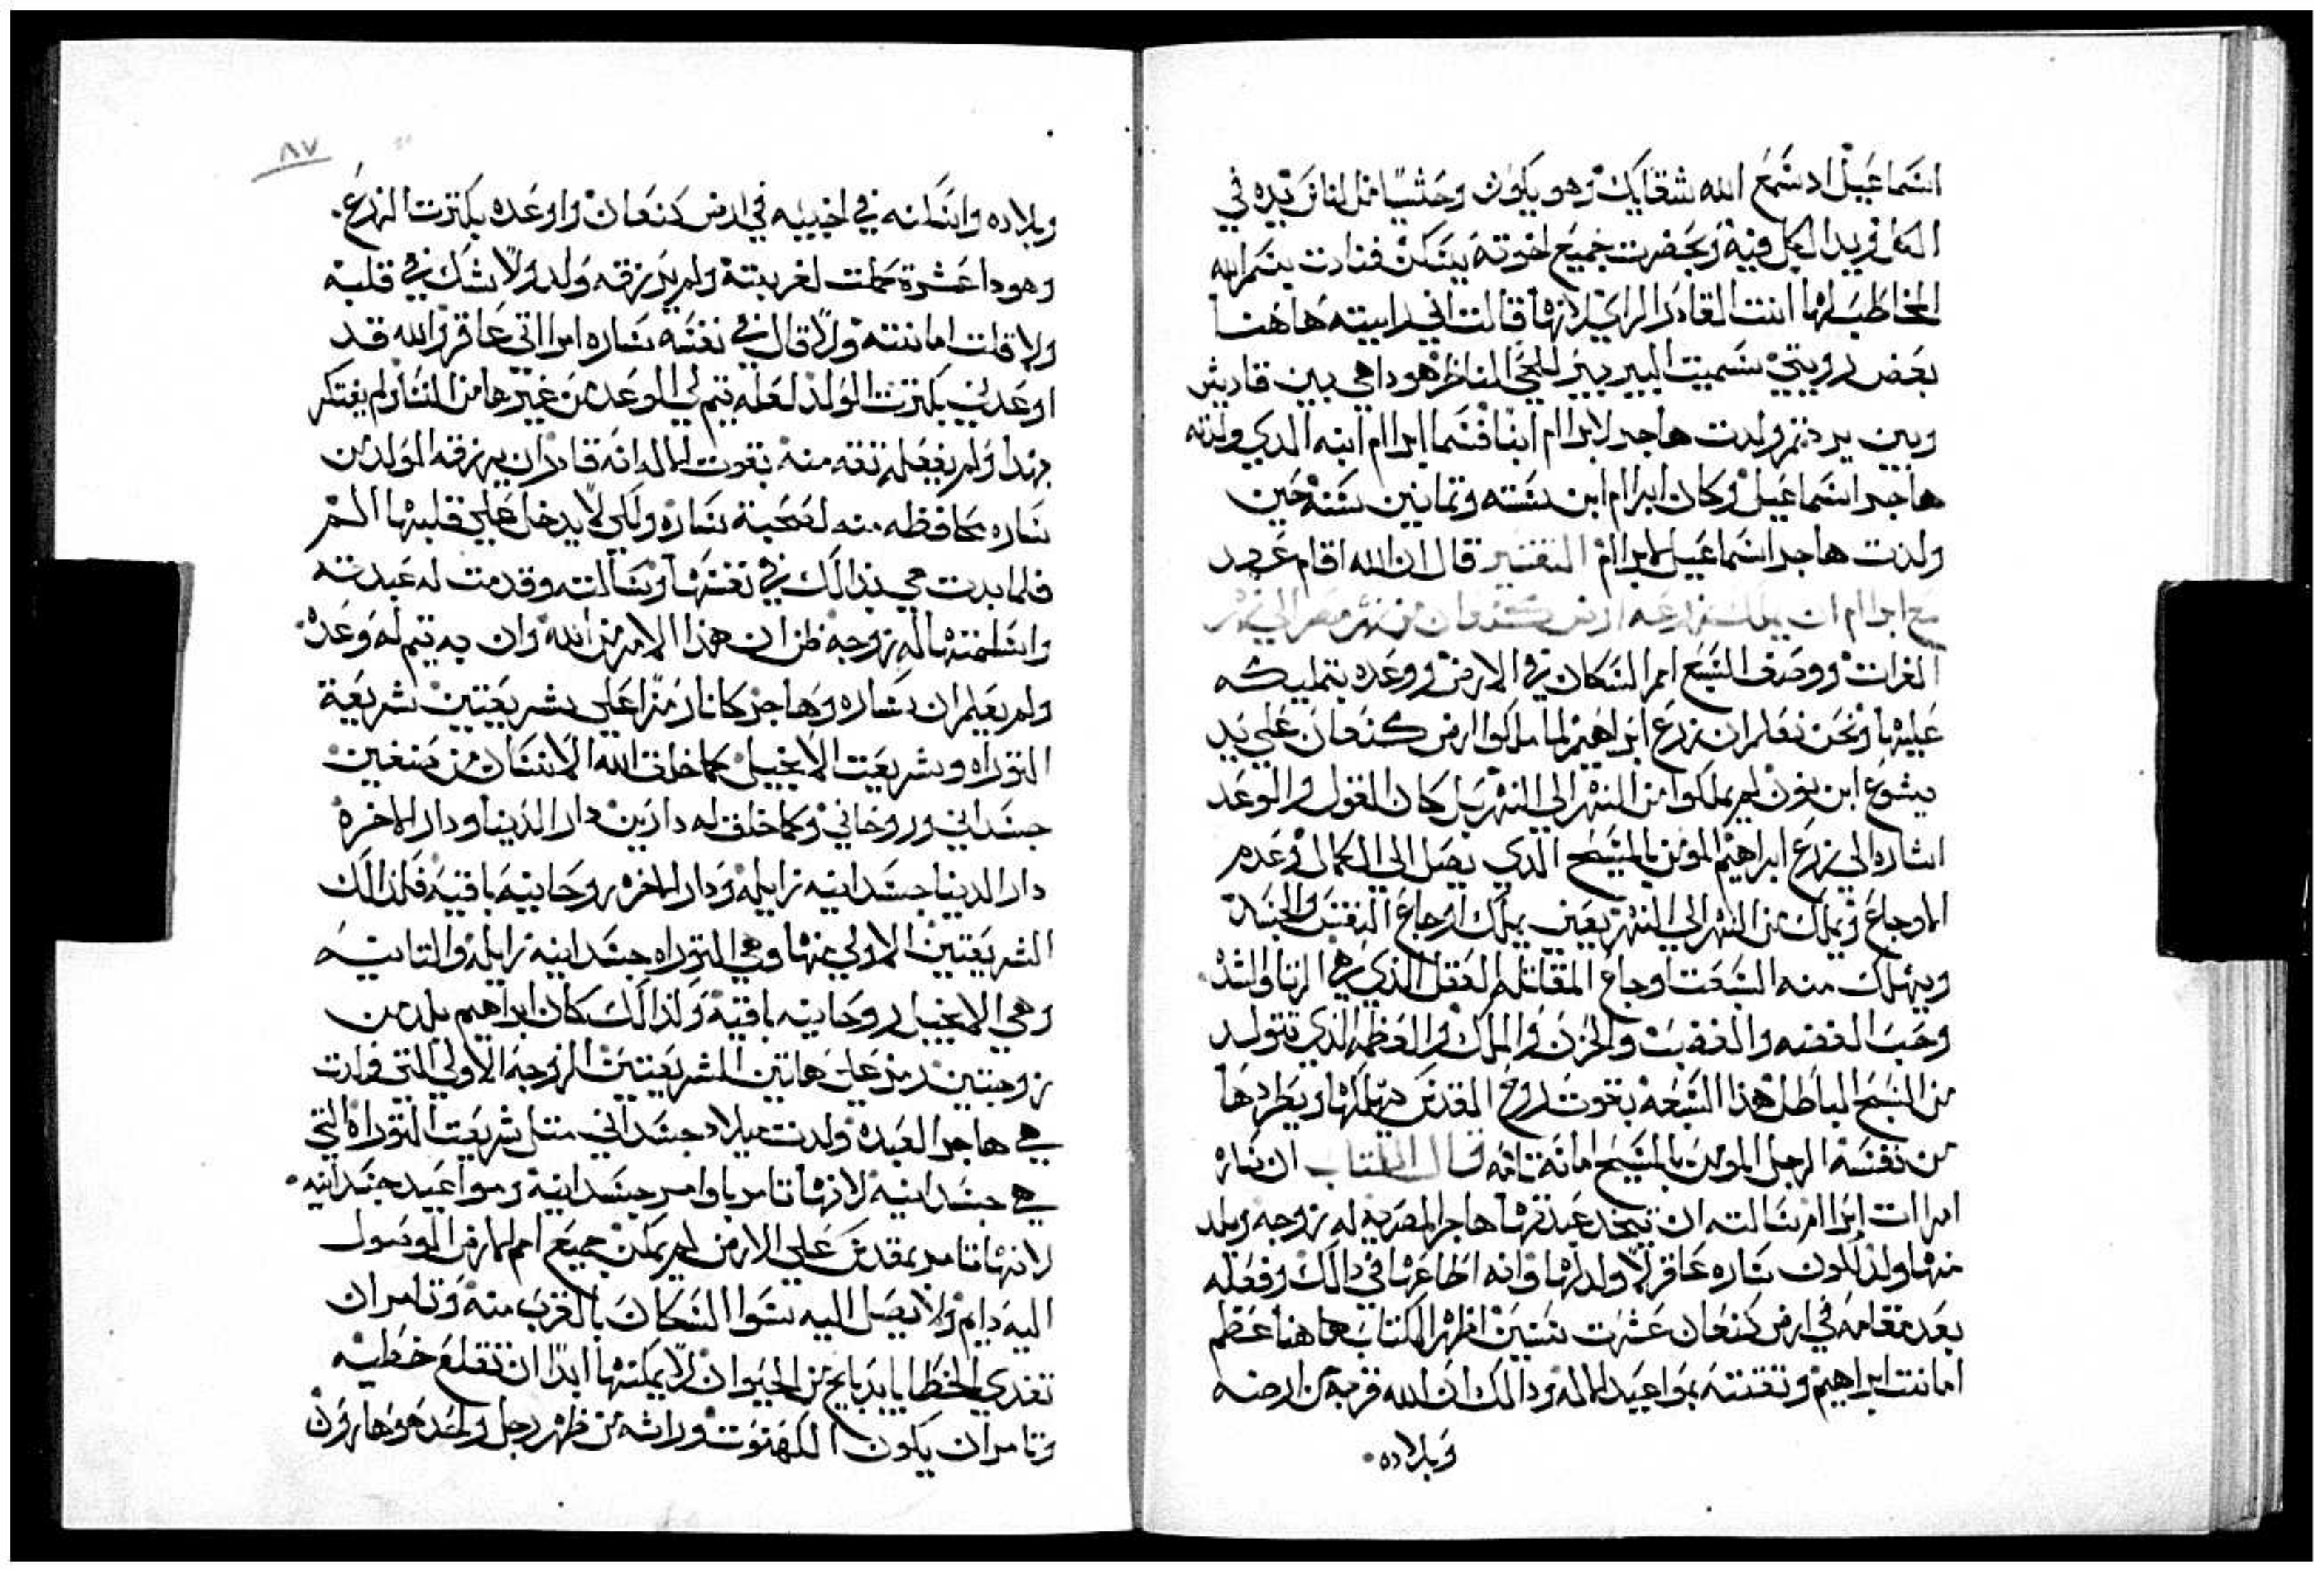 اسماعيل اد سمع الله شقايك وهو يكون وحشيا مثل الناس يده في
الكل ويد الكل فيه وبحضرت جميع اخوته يسكن فنادت بسم الله
المخاطب لها انت القادر الراي لانها قالت اني رايته هاهنا
بعض رويتي سميت البير بير الحي الناظر هودا هي بين قاديش
وبين برد تم ولدت هاجر لابراام ابنا فسما ابراام ابنه الدي ولدته
هاجر اسماعيل وكان ابرام ابن سته وتمانين سنه حين
ولدت هاجر اسماعيل لابراام التفسير قال ان الله اقام عهد
مع ابراام ان يملك زرعه ارض كنعان من نهر مصر الي نهر
الفرات ووصف السبع امم السكان في الارض ووعده بتمليكه
عليها ونحن نعلم ان زرع ابراهيم لما ملكوا ارض كنعان علي يد
يشوع ابن نون لم يملكوا من النهر الي النهر بل كان القول والوعد
اشاره الي زرع ابراهيم المومن بالمسيح الدي يصل الي الكمال وعدم
الاوجاع ويملك من النهر الي النهر يعني يملك اوجاع النفس والجسد
ويهلك منه السبعت اوجاع المقاتله العقل الذي هي الزنا والشد
وحب الفضه والغضب والحزن والملك والعظمه الذي تتولد
من السبح الباطل هذا السبعه بقوت روح القدس يهلكها ويطردها
من نفسه الرجل المومن بالمسيح امانه تامه قال الكتاب ان ساره
امرات ابراام سالته ان يتخد عبدتها هاجر المصريه له زوجه ويلد
منها ولد لكون ساره عاقر لا ولد لها وانه اطاعها في دالك وفعله
بعد مقامه في ارض كنعان عشرت سنين اظهر الكتاب هاهنا عظم
امانت ابراهيم وتقته بمواعيد الاله ودالك ان الله قربه من ارضه
وبلاده
٨٧
وبلاده واسكنه في اخبيه في ارض كنعان واوعده بكترت الزرع
وهودا عشرة كملت لغربته ولم يرزقه ولد ولا شك في قلبه
ولا قلت امانته ولا قال في نفسه ساره امراتي عاقر والله قد
اوعدني بكترت الولد لعله يتم لي الوعد من غيرها من النسا ولم يفتكر
بهدا ولم يفعله تقه منه بقوت الاله انه قادر ان يرزقه الولد من
ساره محافظه منه لصحبة ساره ولكي لا يدخل علي قلبها الهم
فلما بدت هي بدالك في نفسها وسالته وقدمت له عبدته
واسلمتها له زوجه ظن ان هذا الامر من الله وان به يتم له وعده
ولم يعلم ان ساره وهاجر كانا رمزا علي شريعتين شريعة
التوراه وشريعت الانجيل كما خلق الله الانسان من صنفين
جسداني وروحاني وكما خلق له دارين دار الدنيا ودار الاخره
دار الدنيا جسدانيه زايله ودار الاخره روحانيه باقيه فكذالك
الشريعتين الاولي منها وهي التوراه جسدانيه زايله والتانيه
وهي الانجيل روحانيه باقيه ولذالك كان ابراهيم يلد من
زوجتين رمز علي هاتين الشريعتين الزوجه الاولي التي ولدت
هي هاجر العبده ولدت ميلاد جسداني متل شريعت التوراه التي
هي جسدانيه لانها تامر باوامر جسدانيه ومواعيد جسدانيه
لانها تامر بمقدس علي الارض لم يمكن جميع امم الارض الوصول
اليه دايم ولا يصل اليه سوا السكان بالقرب منه وتامر ان
تفدي الخطايا بدبايح من الحيوان لا يمكنها ابدا ان تقلع خطيه
وتامر ان يكون الكهنوت وراثه من ظهر رجل واحد هو هارون